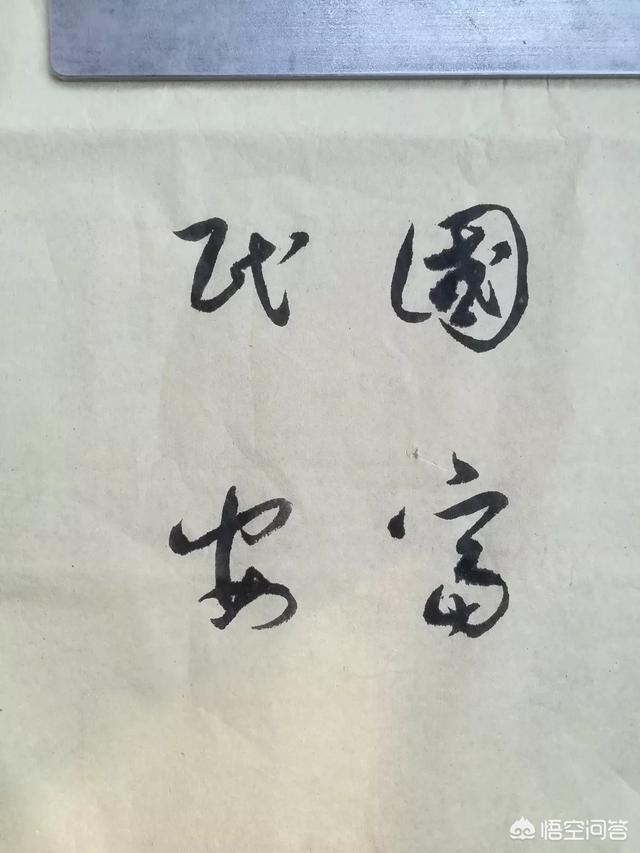 國富
民安
悟空问答